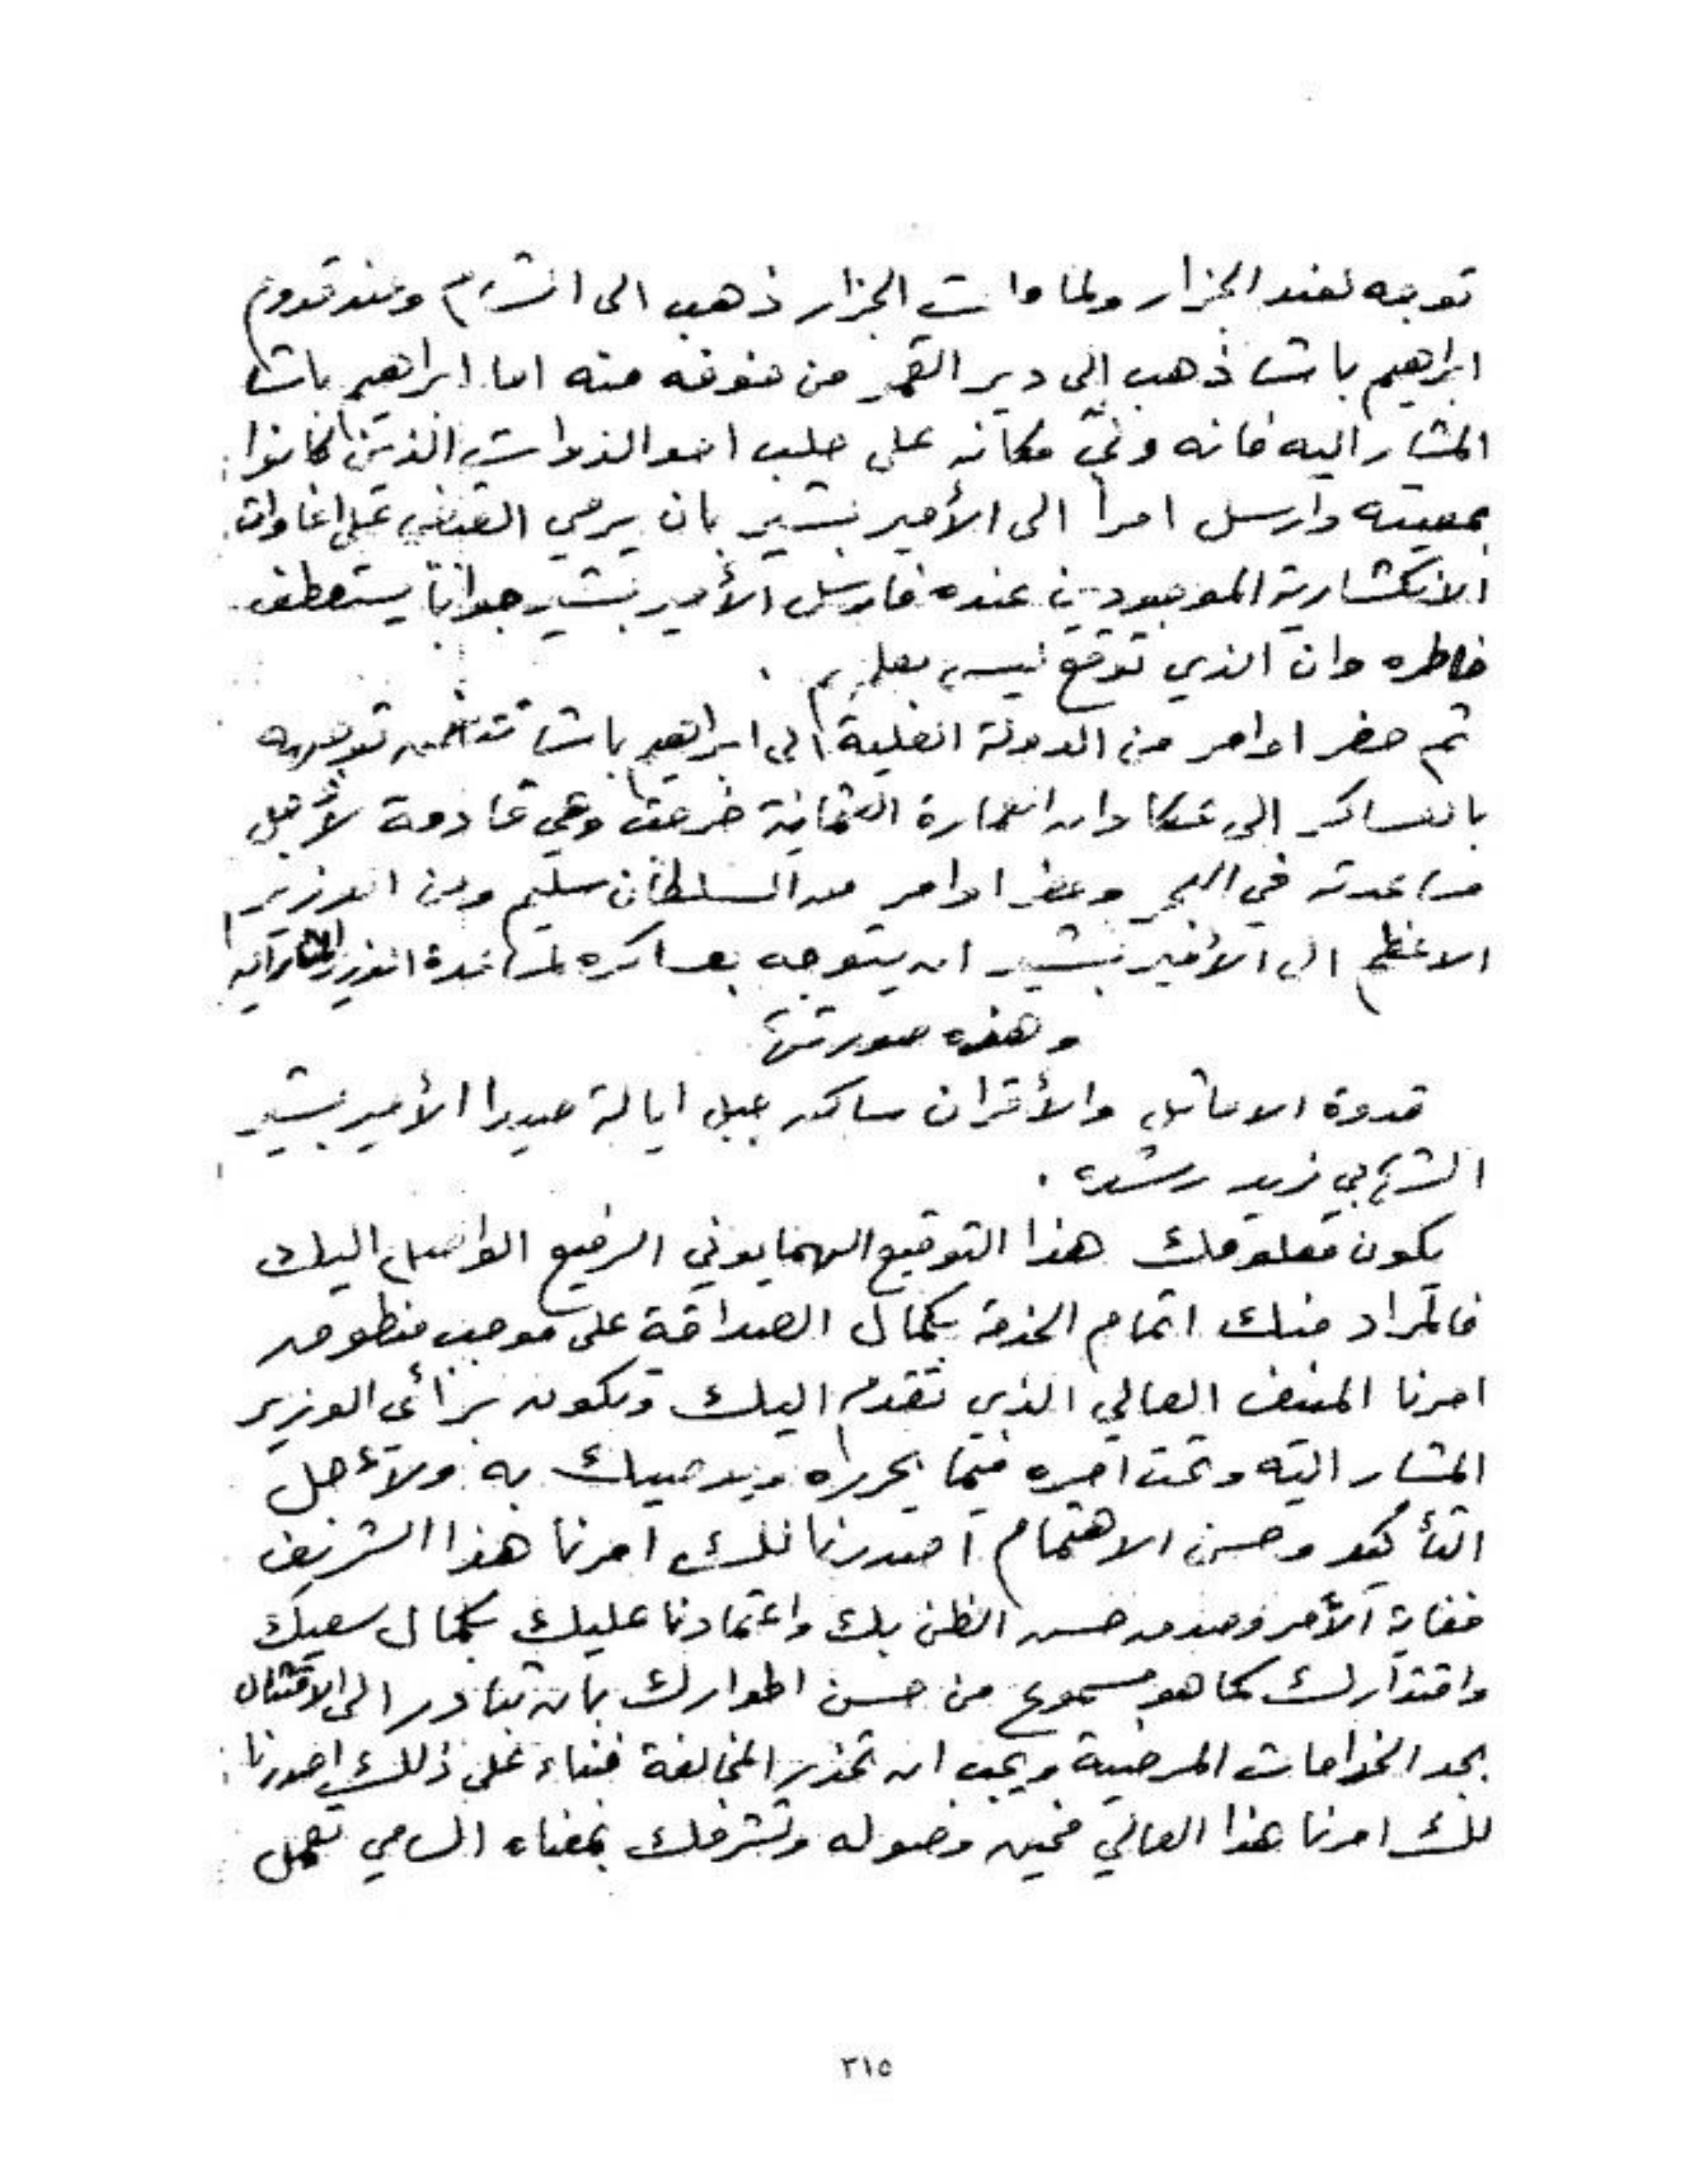 توجه لعند الجزار ولما مات الجزار ذهب الى الشام وعند قدوم
ابراهيم باشا ذهب الى دير القمر من خوفه منه اما ابراهيم باشا
المشار اليه فانه ولىّ مكانه على حلب احد الذوات الذين كانوا
بمعيته وارسل امراً الى الأمير بشير بان يرمي القبض على اغاوات
الانكشارية الموجودين عنده فارسل الأمير بشير جواباً يستعطف
خاطره وان الذي توقع ليس بعلمه .
ثم حضر اوامر من الدولة العلية الى ابراهيم باشا تتضمن توجهه
بالعساكر الى عكا وان العمارة العثمانية خرجت وهي قادمة لأجل
مساعدته في البحر وحضر اوامر من السلطان سليم ومن الوزير
الاعظم الى الأمير بشير ان يتوجه بعساكره لمساعدة الوزير المشار اليه
وهذه صورتها
قدوة الاماثل والأقران ساكن جبل ايالة صيدا الأمير بشير
الشهابي زيد رشده .
يكون معلومك هذا التوقيع الهمايوني الرفيع الواصل اليك
فالمراد منك اتمام الخدمة بكمال الصداقة على موجب منطوق
امرنا المنيف العالي الذي تقدم اليك وتكون برأى الوزير
المشار اليه وتحت امره فيما يحرره ويوصيك به ولأجل
التأكيد وحسن الاهتمام اصدرنا لك امرنا هذا الشريف
فغاية الأمر وصدق حسن الظن بك واعتمادنا عليك بكمال سعيك
واقتدارك كما هو مسموع من حسن اطوارك بان تبادر الى الامتثال
بجد الخدامات المرضية ويجب ان تحذر المخالفة فبناء على ذلك اصدرنا
لك امرنا هذا العالي فحين وصوله وتشرفك بمعناه السامي تعمل
٣١٥